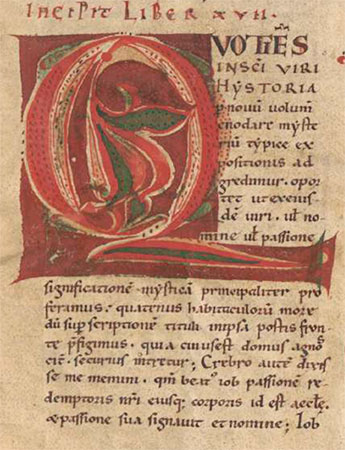 Incipit Liber xvii.
QVOTIĒS
IN SCĪ VIRI
HYSTORIA
p nouū volum̄
enodare mÿste
riū typice ex
positionis ad
gredimur. opor
tet ut ex eiusdē
uiri. ul̄ no
mine ul̄ passione
significationē mÿsticā principaliter pro
feramus. quatenus habitaculorum more
dū supscriptionē tituli in ipsa postis fron
te p̄figimus. quia cuius est domus agnos
cit̄. securius intretur; Crebro autē dixis
se me memini. qm̄ beat᷒ iob passionē re
demptoris nr̄i eiusq; corporis id est aeccl̄ę.
& passione sua signauit et nomine; Iob